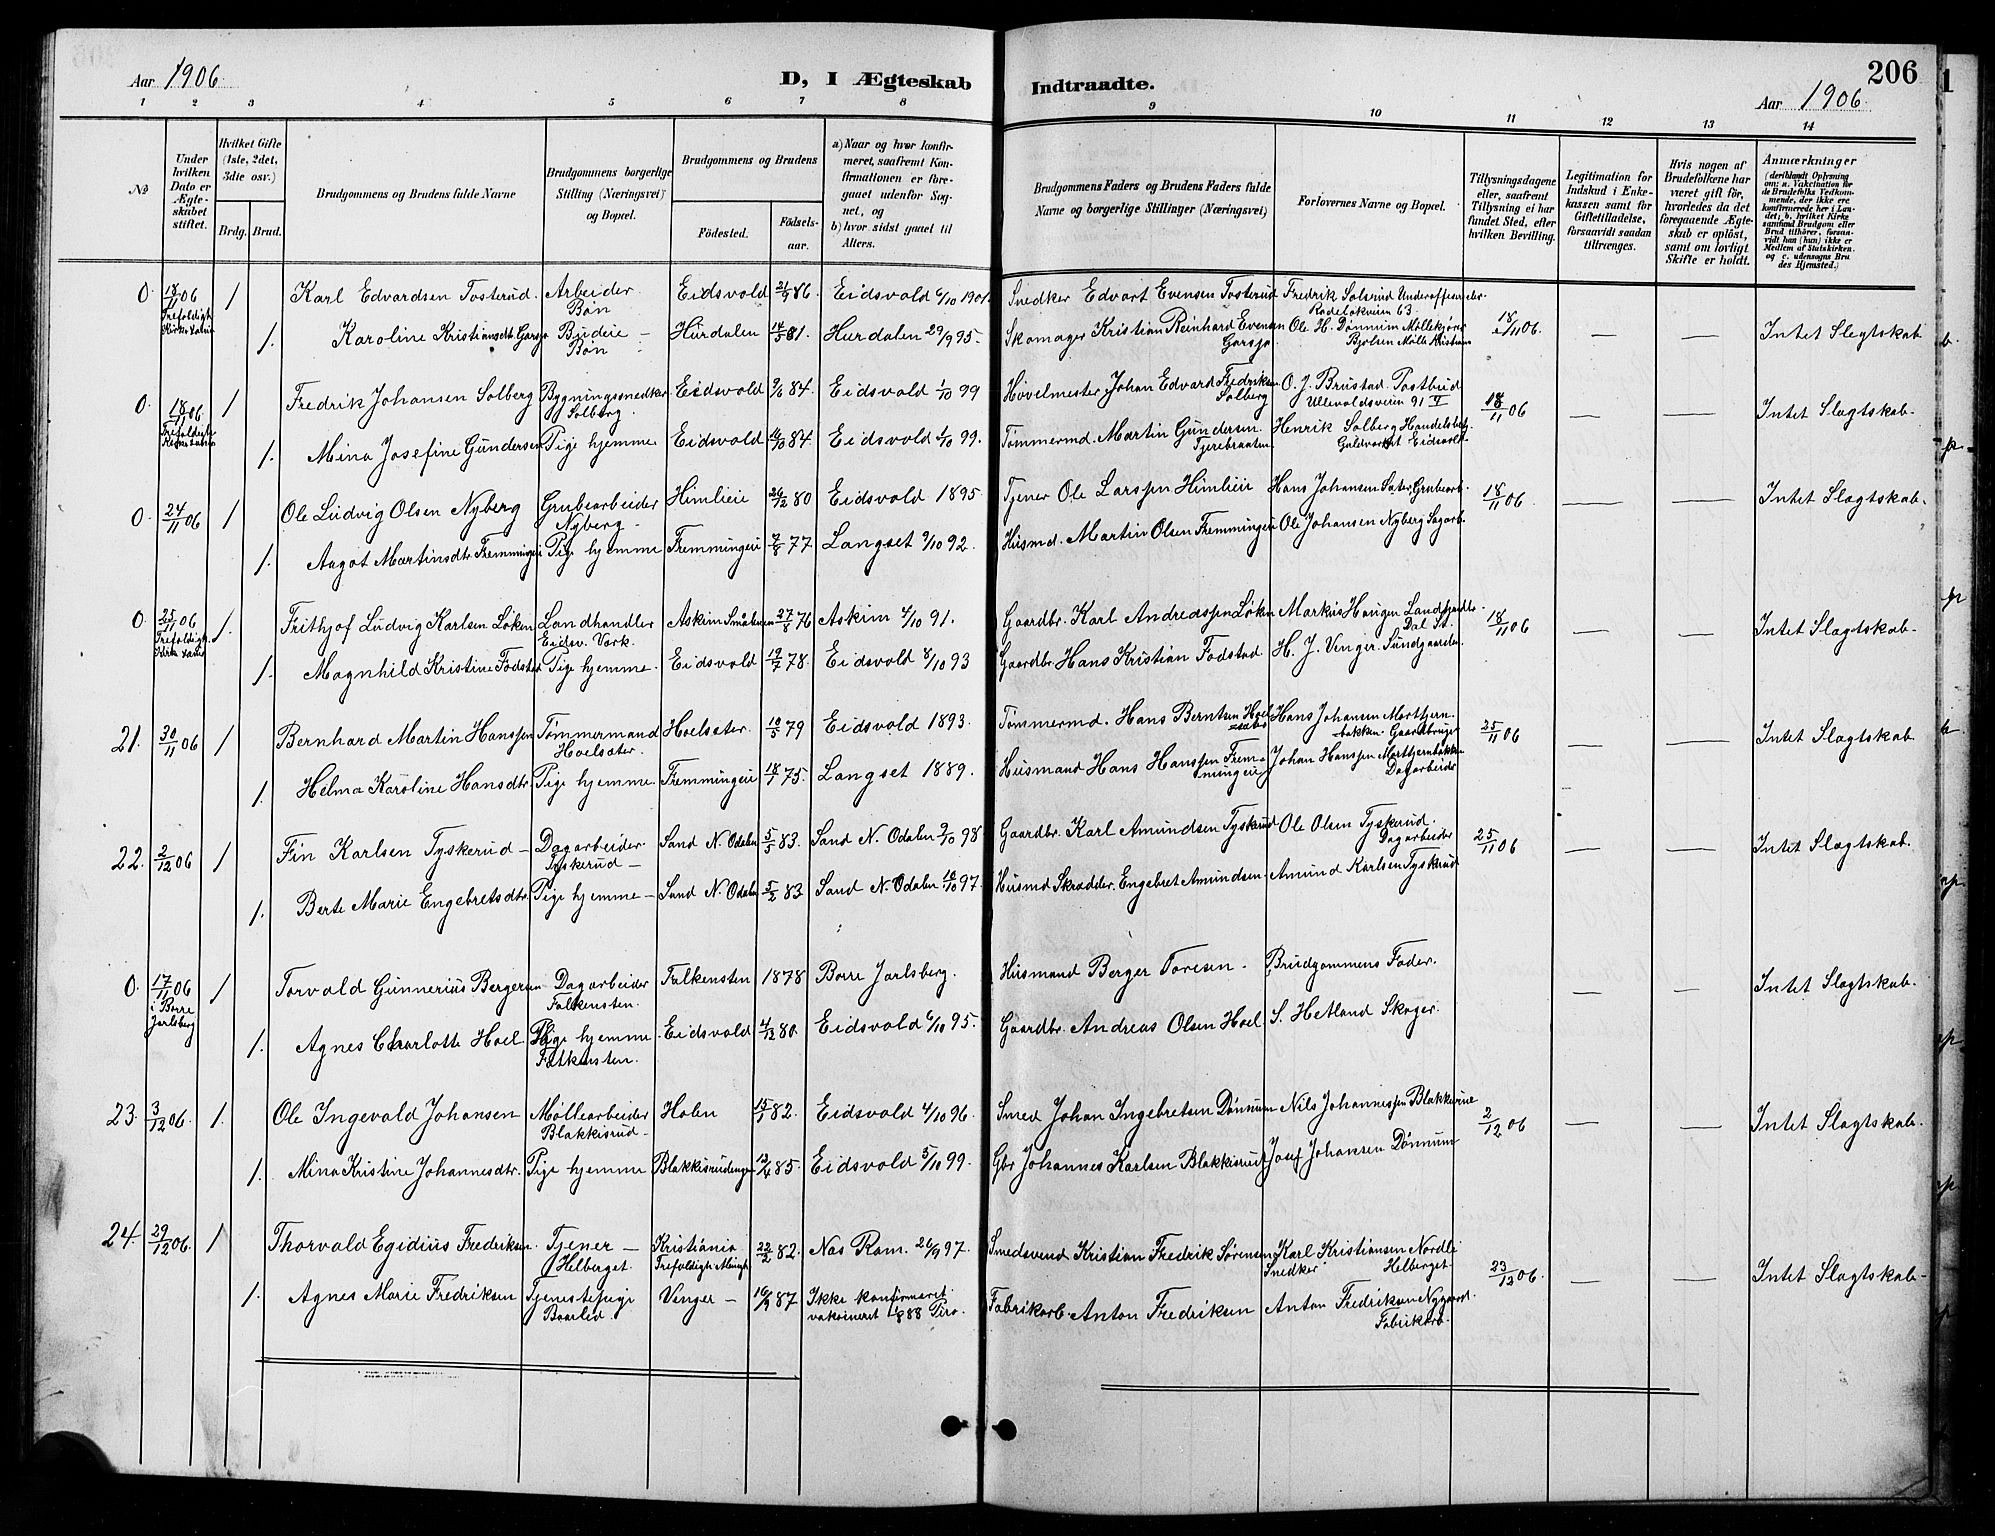 Aar 1906
D, I Ægteskab
Indtraadte.
206
Aar 1906.
1 2 3 4 5 6 7 8 9 10 11 12 13 14
No
Under hvilken Dato er Ægteskabet stiftet.
Hvilket Gifte (1ste, 2det, 3die osv.)
Brdg. Brud.
Brudgommens og Brudens fulde Navne
Brudgommens borgerlige Stilling (Næringsvei) og Bopæl.
Brudgommens og Brudens
Fødested.
Fødselsaar.
a) Naar og hvor konfirmeret, saafremt Konfirmationen er foregaaet udenfor Sognet, og
b) hvor sidst gaaet til Alters.
Brudgommens Faders og Brudens Faders fulde Navne og borgerlige Stillinger (Næringsvei)
Forlovernes Navne og Bopæl.
Tillysningsdagene eller, saafremt Tillysning ei har fundet Sted, efter hvilken Bevilling.
Legitimation for Indskud i Enkekassen samt for Giftetilladelse, forsaavidt saadan tiltrænges.
Hvis nogen af Brudefolkene har været gift før, hvorledes da det foregaaende Ægteskab er opløst, samt om lovligt Skifte er holdt.
Anmærkninger (deriblandt Oplysning om: a. Vakcination for de Brudefolks Vedkommende, der ikke ere konfirmerede her i Landet; b. hvilket Kirkesamfund Brudgom eller Brud tilhører, forsaavidt han (hun) ikke er Medlem af Statskirken. og c. udensogns Brudes Hjemsted.)
0. 18/11 06 1 Karl Edvardsen Tosterud. Arbeider Eidsvold 21/9 86. Eidsvold 6/10 1901. Snedker Edvart Evensen Tosterud Fredrik Solsrud Underofficer
Trefoldigh. Bøn 63.
1. Karoline Kristiansdt. Garsjø Budeie – Hurdalen 14/5 81. Hurdalen 29/9 95. Skomager Kristian Reinhard Evensen Ole H. Dønnum Møllekjører 18/11 06. — — Intet Slegtskab
Bøn Garsjø Bjølsen Mølle Kristiania
0. 18/11 06 1 Fredrik Johansen Solberg Bygningssnedker Eidsvold 9/6 84. Eidsvold 1/10 99 Høvelmester Johan Edvard Fredriksen O. J. Brustad. Postbud 18/11 06 — — Intet Slagtskab.
Trefoldigh. Solberg. Solberg Ullevoldsveien 91 V
1. Mina Josefine Gundersen Pige hjemme Eidsvold 14/10 84 Eidsvold 1/10 99. Tømmermd. Martin Gundersen Henrik Solberg Handelsbetj.
Tjerebraaten Guldverket Eidsvold.
0. 24/11 06 1 Ole Ludvig Olsen Nyberg Grubearbeider Himlieie 26/12 80 Eidsvold 1895 Tjener Ole Larssen Himlieie Hans Johansen Sater Grubearb. 18/11 06 — — Intet Slagtskab.
Nyberg.
1. Aagot Martinsdtr. Fremmingeie Pige hjemme Fremmingeie 7/8 77 Langset 9/10 92. Husmd. Martin Olsen Fremmingeie Ole Johansen Nyberg Sagarb.
0. 25/11 06 1. Frithjof Ludvig Karlsen Løken Landhandler Askim Smålenene 27/8 76 Askim 4/10 91. Gaardbr. Karl Andreassen Løken Markus Haugen Landhandler 18/11 06 — — Intet Slagtskab.
Trefoldigh. Eidsv. Verk. Dal St.
1. Magnhild Kristine Fodstad Pige hjemme. Eidsvold 19/7 78. Eidsvold 8/10 93 Gaardbr. Hans Kristian Fodstad H. J. Venger. Sundgaarden
21. 30/11 06 1 Bernhard Martin Hanssen Tømmermand Hoelsæter. 10/5 79 Eidsvold 1893. Tømmermd. Hans Berntsen Hoelsæter Hans Johansen Morttjernbakken. Gaardbruger 25/11 06 — — Intet Slagtskab
Hoelsæter.
1. Helma Karoline Hansdtr. Pige hjemme. Fremmingeie 18/1 75. Langset 1889. Husmand Hans Hanssen Fremmingeie Johan Hanssen Morttjernbakken
Dagarbeider
22. 2/12 06 1 Fin Karlsen Tyskerud – Dagarbeider Sand N. Odalen 5/5 83. Sand N. Odalen 2/10 98 Gaardbr. Karl Amundsen Tyskerud Ole Olsen Tyskerud. 25/11 06 — — Intet Slagtskab.
Tyskerud – Dagarbeider
1. Berte Marie Engebretsdtr. Pige hjemme – Sand N. Odalen 5/2 83 Sand N. Odalen 10/10 97. Husmd Skrædder. Engebret Amundsen. Amund Karlsen Tyskerud
0. 17/11 06 1 Torvald Gunnerius Bergersen Dagarbeider Falkensten 1878 Borre Jarlsberg. Husmand Berger Toresen. Brudgommens Fader. — — Intet Slagtskab.
i Borre Jarlsberg Falkensten.
1. Agnes Charlotte Hoel Pige hjemme Eidsvold 4/12 80. Eidsvold 6/10 95. Gaardbr. Andreas Olsen Hoel S. Hetland Skoger.
Falkensten.
23. 3/12 06. 1. Ole Ingevald Johansen Møllearbeider Holen 15/1 82. Eidsvold 4/10 96. Smed Johan Ingebretsen Dønnum Nils Johannessen Blakkisrud 2/12 06 — — Intet Slagtskab.
Blakkisrud.
1. Mina Kristine Johannesdtr. Pige hjemme Blakkisrudengen 12/4 85. Eidsvold 5/10 99. Gbr. Johannes Karlsen Blakkisrud Josef Johansen Dønnum
24. 29/12 06. 1 Thorvald Egidius Fredriksen. Tjener – Kristiania 22/2 82. Nes Rom. 26/9 97. Smedsvend Kristian Fredrik Sørensen Karl Kristiansen Nordli 23/12 06. — — Intet Slagtskab.
Helberget. Trefoldigh. Menigh. Snedker Helberget.
1. Agnes Marie Fredriksen Tjenestepige Venger – 16/9 87 Ikke konfirmeret. Fabrikarb. Anton Fredriksen Anton Fredriksen Nygaard.
Baarlid. vakcineret 88 Fabrikarb.